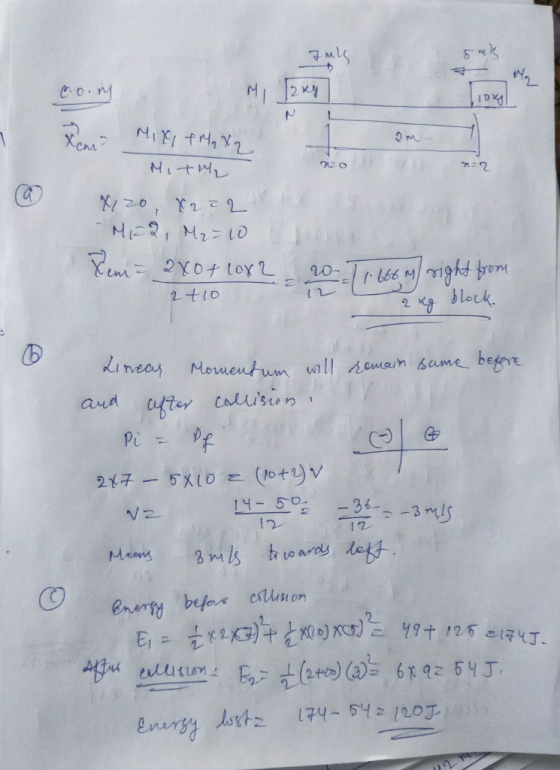 7 m/s 5 m/s
C.O.M M1 2kg 10kg M2
N
2m
x=0 x=2
Xcm = M1X1 + M2X2 / M1+M2
(a)
X1=0, X2=2
M1=2, M2=10
Xcm = 2X0+10X2 / 2+10 = 20/12 = 1.666 M right from
2 kg block.
(b) Linear Momentum will remain same before
and after collision.
Pi = Pf (-) +
2x7 - 5x10 = (10+2)V
V= 14-50/12 = -36/12 = -3 m/s
Means 3 m/s towards left.
(c) Energy before collision
E1 = 1/2 x2x(7)² + 1/2 x(10)x(5)² = 49+125 = 174J.
After collision: E2 = 1/2 (2+10) (3)² = 6x9 = 54 J.
Energy lost = 174-54 = 120J